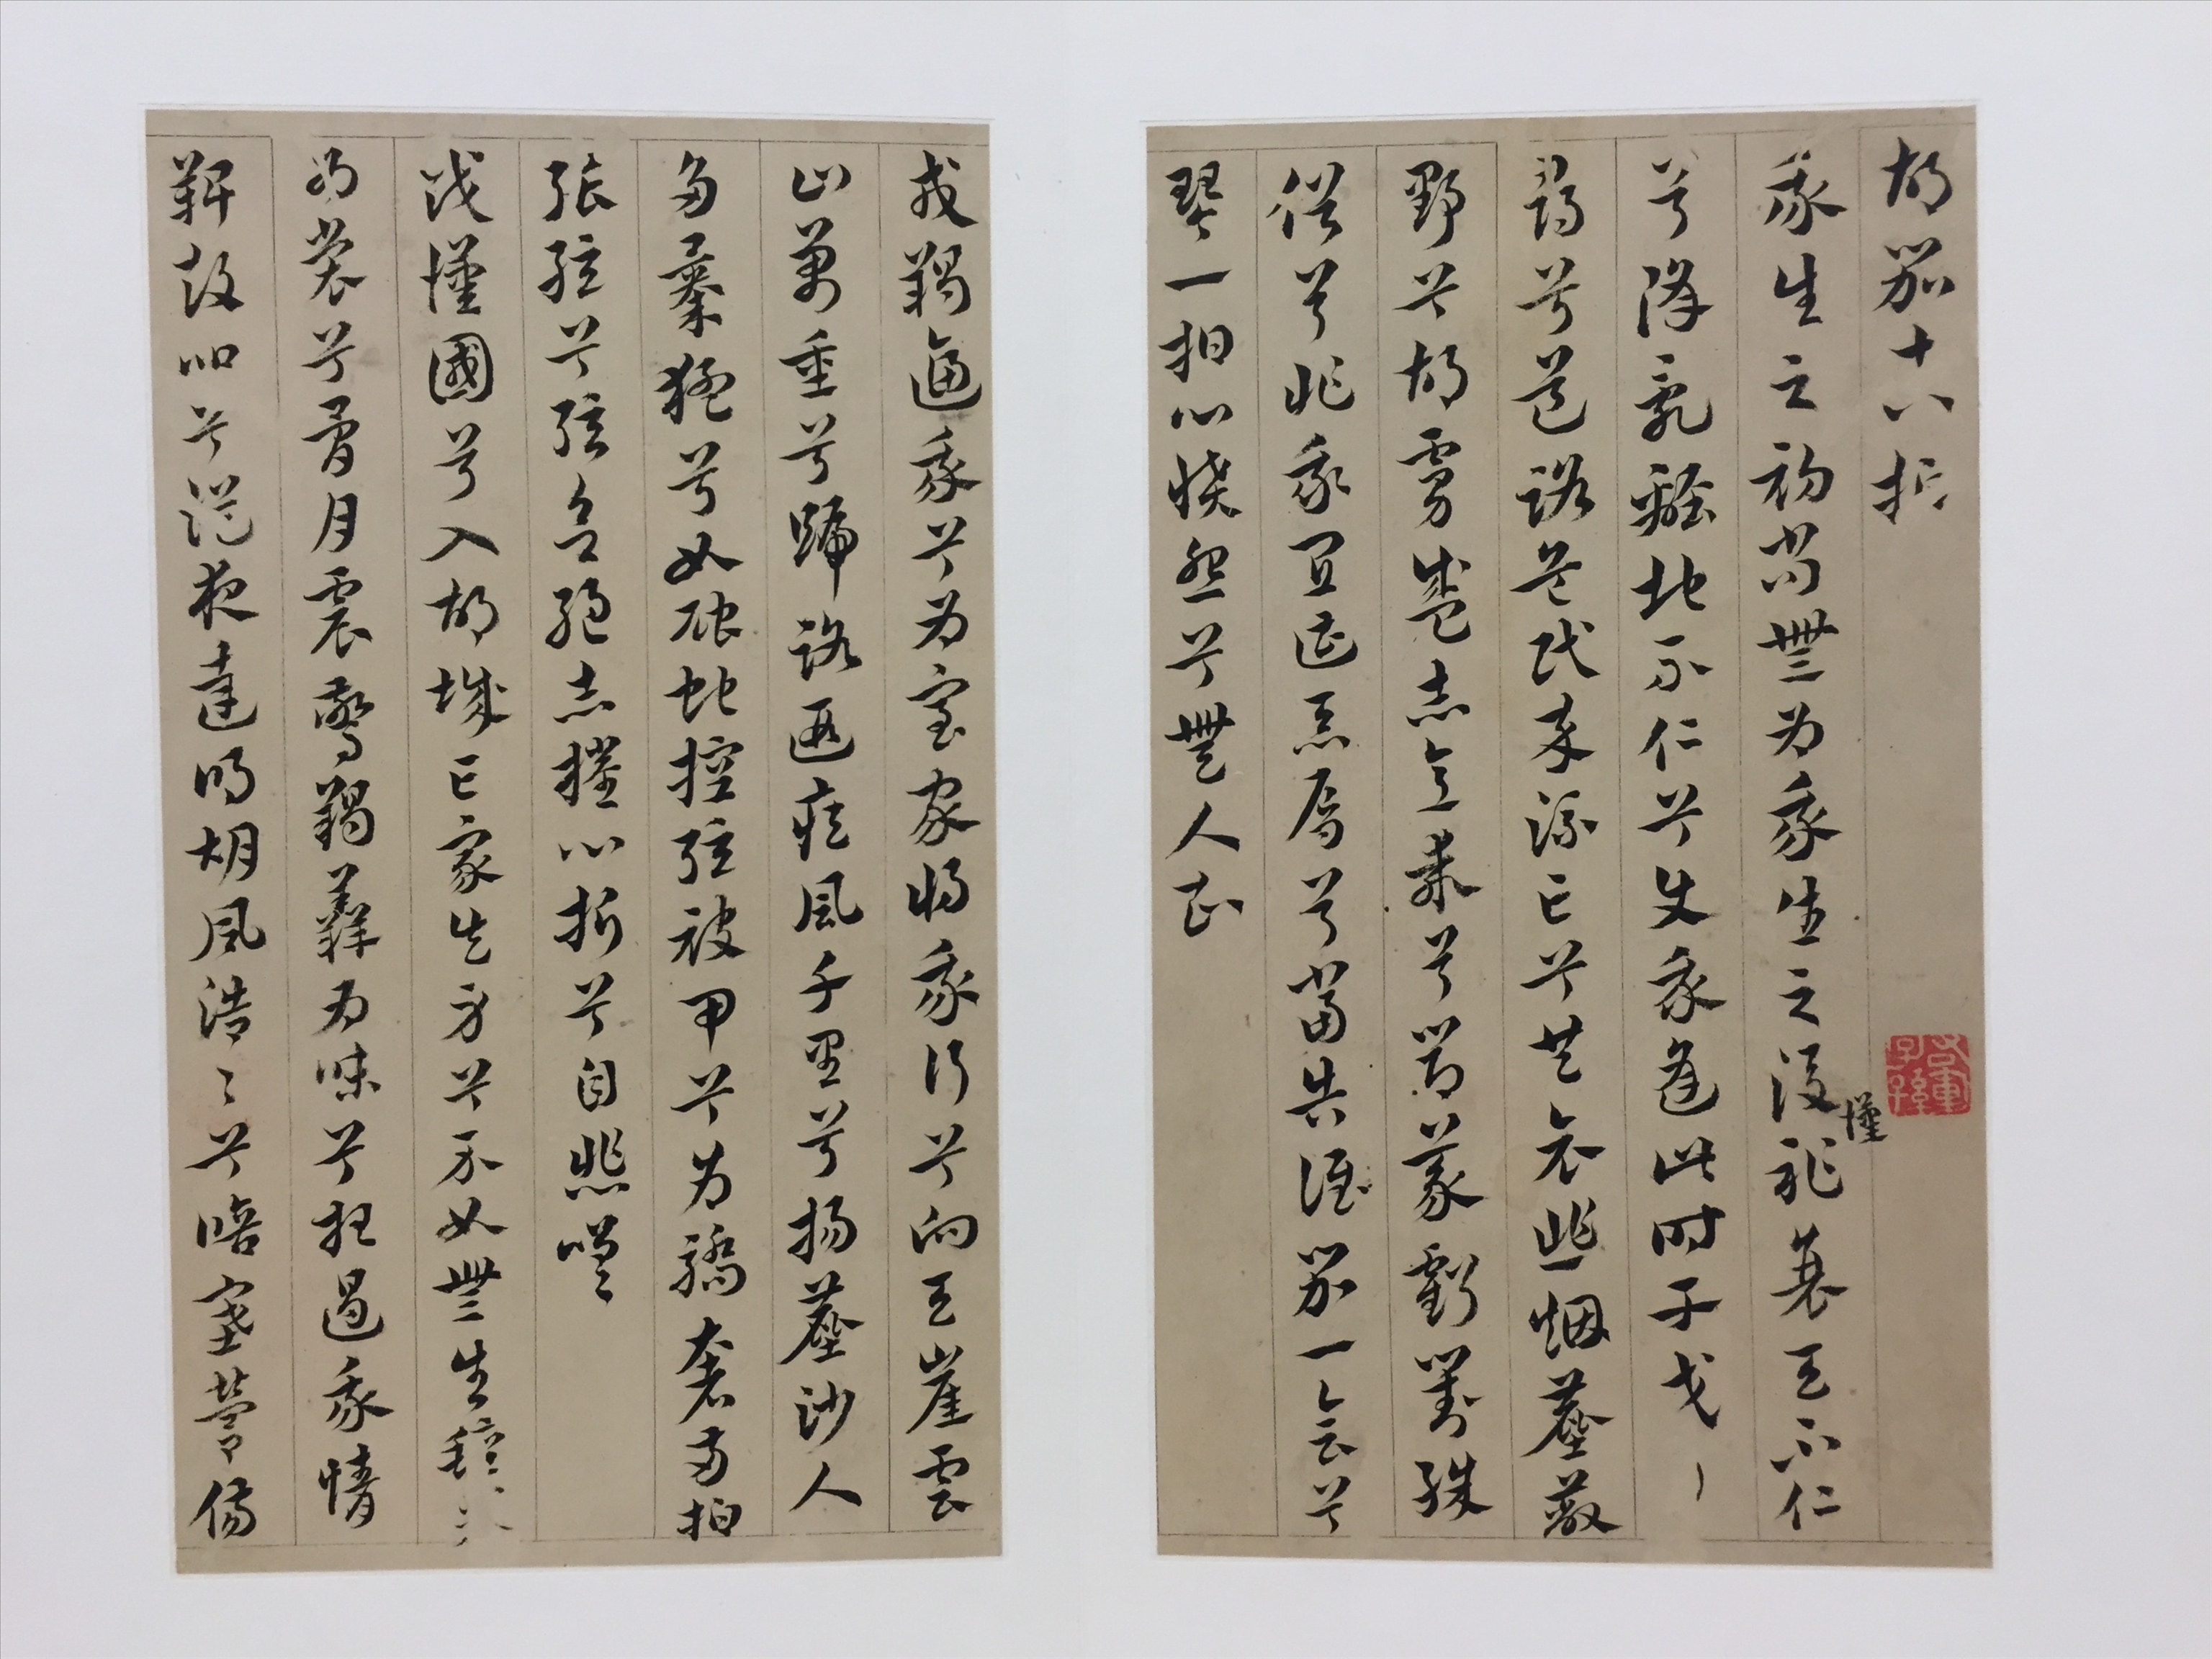 胡笳十八拍
我生之初尚無為我生之後漢祚衰天不仁
兮降亂離地不仁兮使我逢此時干戈
尋兮道路危民卒流亡兮共哀悲烟塵蔽
野兮胡虜盛志意乖兮節義虧對殊
俗兮非我宜遭惡辱兮當告誰笳一會兮
琴一拍心憤怨兮無人知
戎羯逼我兮為室家將我行兮向天崖雲
山萬重兮歸路遐疾風千里兮揚塵沙人
多暴猛兮如虺蛇控弦被甲兮為驕奢兩拍
張弦兮弦欲絕志摧心折兮自悲嗟
越漢國兮入胡城亡家失身兮不如無生氈
為裳兮骨肉震驚羯羶為味兮枉遏我情
鞞鼓喧兮從夜達明胡風浩〻兮暗塞營傷